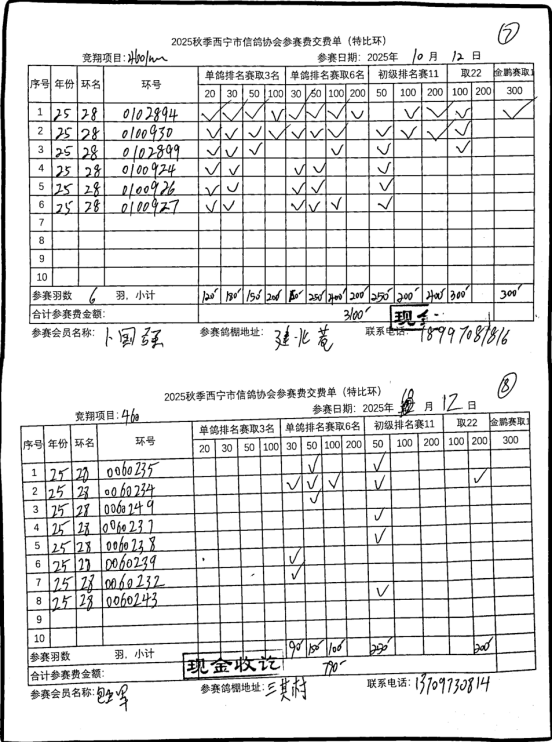 ⑦
2025秋季西宁市信鸽协会参赛费交费单（特比环）
竞翔项目：460km 参赛日期：2025年 10 月 12 日
序号 年份 环名 环号 单鸽排名赛取3名 单鸽排名赛取6名 初级排名赛11 取22 金鹏赛取1
20 30 50 100 30 50 100 200 50 100 200 100 200 300
1 25 28 0102894 ✓ ✓ ✓ ✓ ✓ ✓ ✓ ✓ ✓ ✓ ✓ ✓
2 25 28 0100930 ✓ ✓ ✓ ✓ ✓ ✓ ✓ ✓ ✓ ✓ ✓
3 25 28 0102899 ✓ ✓ ✓ ✓ ✓ ✓
4 25 28 0100924 ✓ ✓ ✓ ✓ ✓
5 25 28 0100926 ✓ ✓ ✓ ✓ ✓
6 25 28 0100927 ✓ ✓ ✓ ✓ ✓ ✓
7
8
9
10
参赛羽数 6 羽，小计 120 180 150 200 250 400 200 250 200 400 300 300
合计参赛费金额： 3100 现金
参赛会员名称：卜国强 参赛鸽棚地址： 联系电话：18997087816
⑧
2025秋季西宁市信鸽协会参赛费交费单（特比环）
竞翔项目：460 参赛日期：2025年 10 月 12 日
序号 年份 环名 环号 单鸽排名赛取3名 单鸽排名赛取6名 初级排名赛11 取22 金鹏赛取1
20 30 50 100 30 50 100 200 50 100 200 100 200 300
1 25 28 0060235 ✓ ✓
2 25 28 0060234 ✓ ✓ ✓ ✓ ✓
3 25 28 0060249 ✓
4 25 28 0060237 ✓
5 25 28 0060238 ✓
6 25 28 0060239 ✓
7 25 28 0060232 ✓
8 25 28 0060243 ✓
9
10
参赛羽数 羽，小计 90 150 100 250 200
合计参赛费金额： 现金收讫 790
参赛会员名称： 参赛鸽棚地址：三其村 联系电话：13709730814